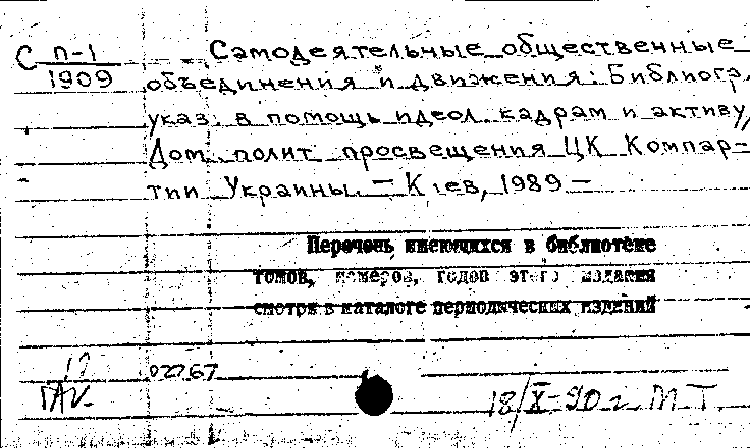 С П-1
1909
Самодеятельные общественные
объединения и движения: Библиогр.
указ. в помощь идеол. кадрам и активу/
Дом полит просвещения ЦК Компар-
тии Украины. — Киев, 1989 —
Перечень имеющихся в библиотеке
томов, номеров, годов этого издания
смотри в каталоге периодических изданий
02767
18/X-90 г. М.Т.